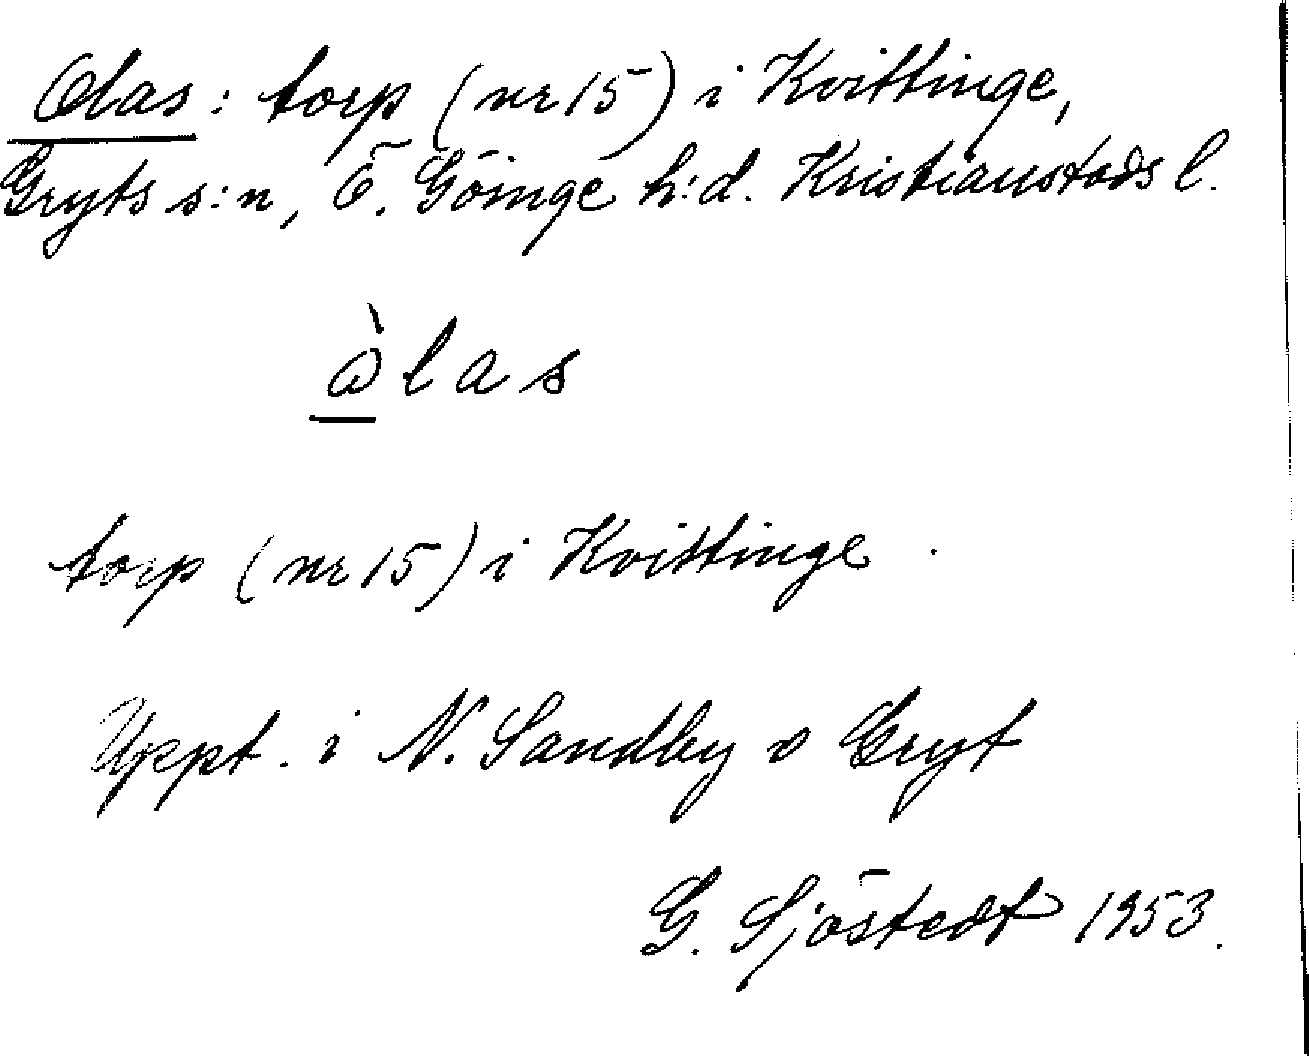 Olas: torp (nr 15) i Kvittinge,
Gryts s:n, Ö. Göinge h:d. Kristianstads l.
òlas
torp (nr 15) i Kvittinge.
Uppt. i N. Sandby o Gryt
G. Sjöstedt 1953.